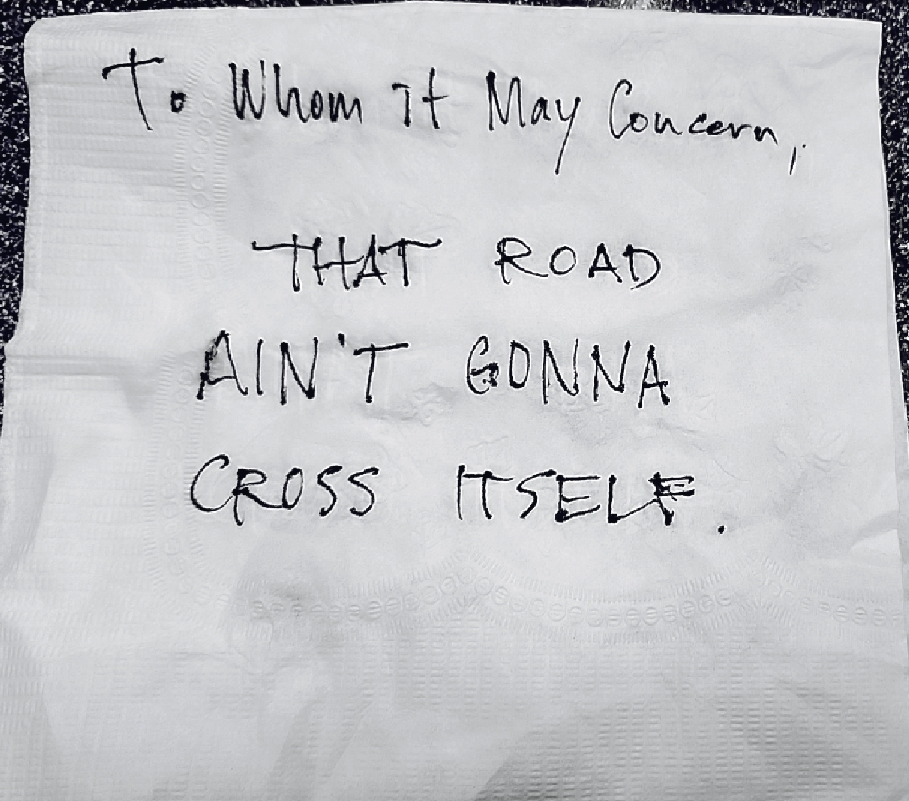 To Whom it May Concern,
THAT ROAD
AIN'T GONNA
CROSS ITSELF.